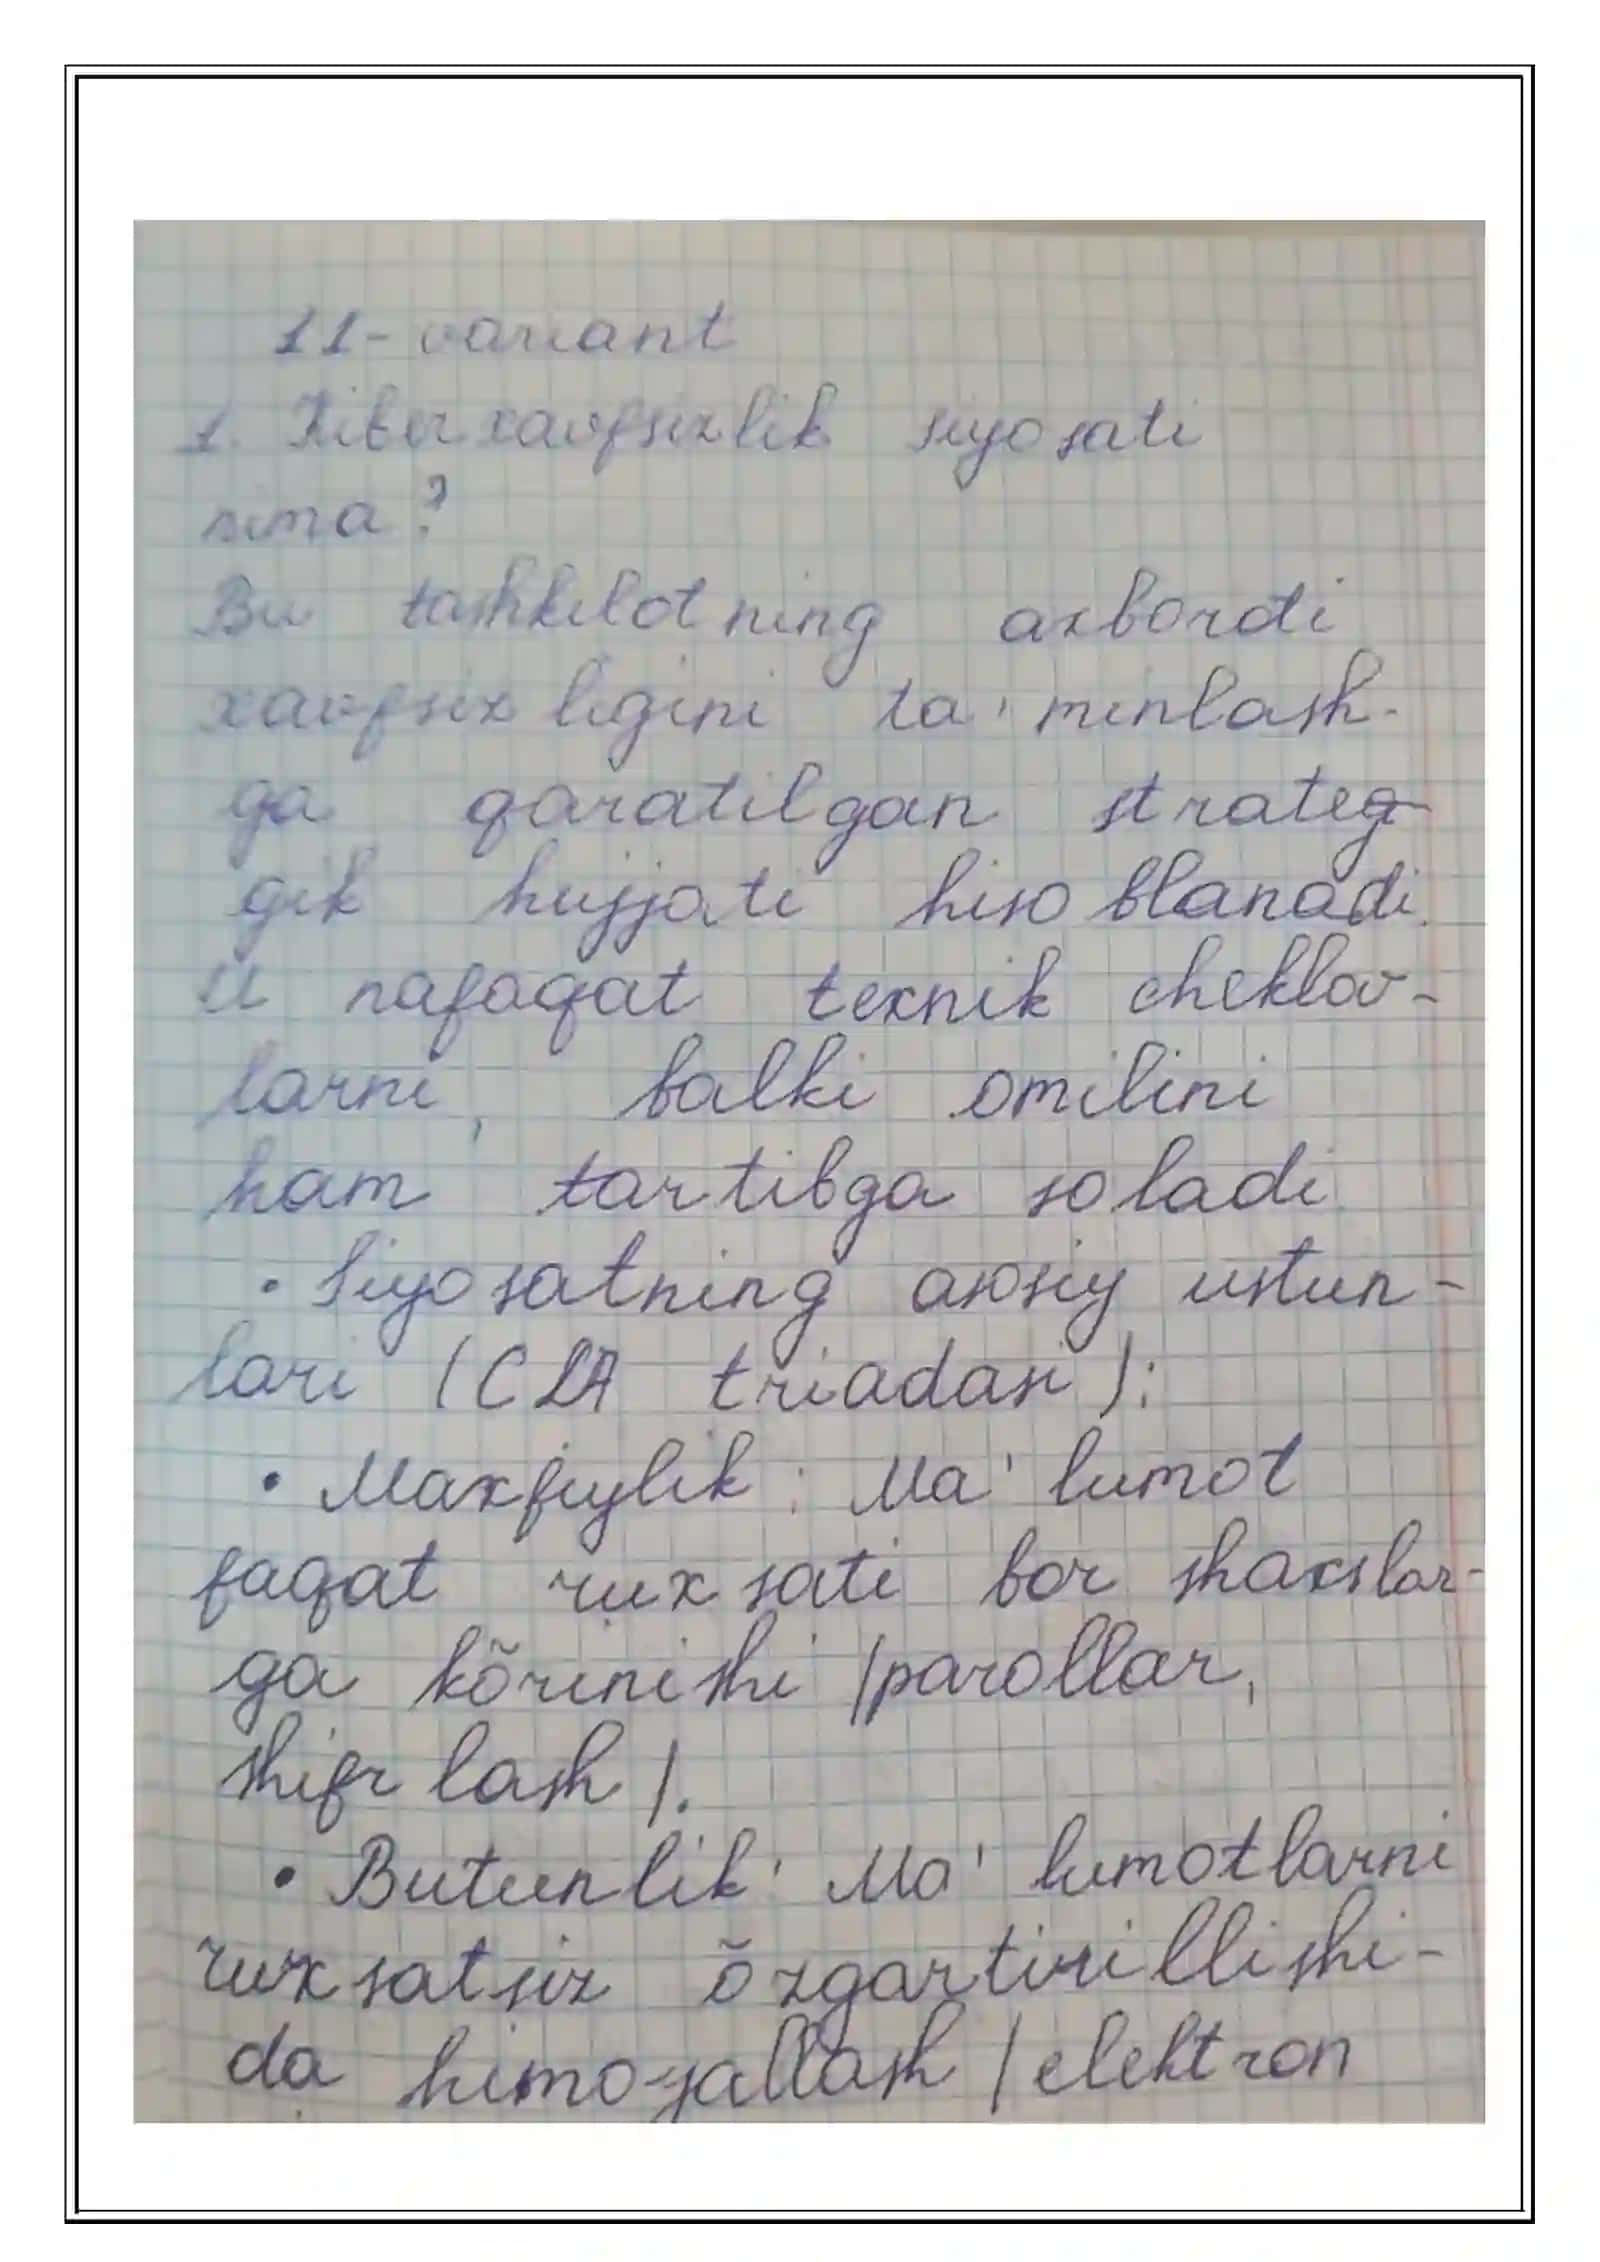 11- variant
1. Kiberxavfsizlik siyosati
nima?
Bu tashkilotning axbordti
xavfsizligini ta'minlash-
ga qaratilgan strateg-
gik hujjati hisoblanadi.
U nafaqat texnik cheklov-
larni, balki omilini
ham tartibga soladi
• Siyosatning asosiy ustun-
lari (CIA triadasi):
• Maxfiylik: Ma'lumot
faqat ruxsati bor shaxslar-
ga kõrinishi (parollar,
shifrlash).
• Butunlik: Ma'lumotlarni
ruxsatsiz õzgartirillishi-
da himoyallash (elektron